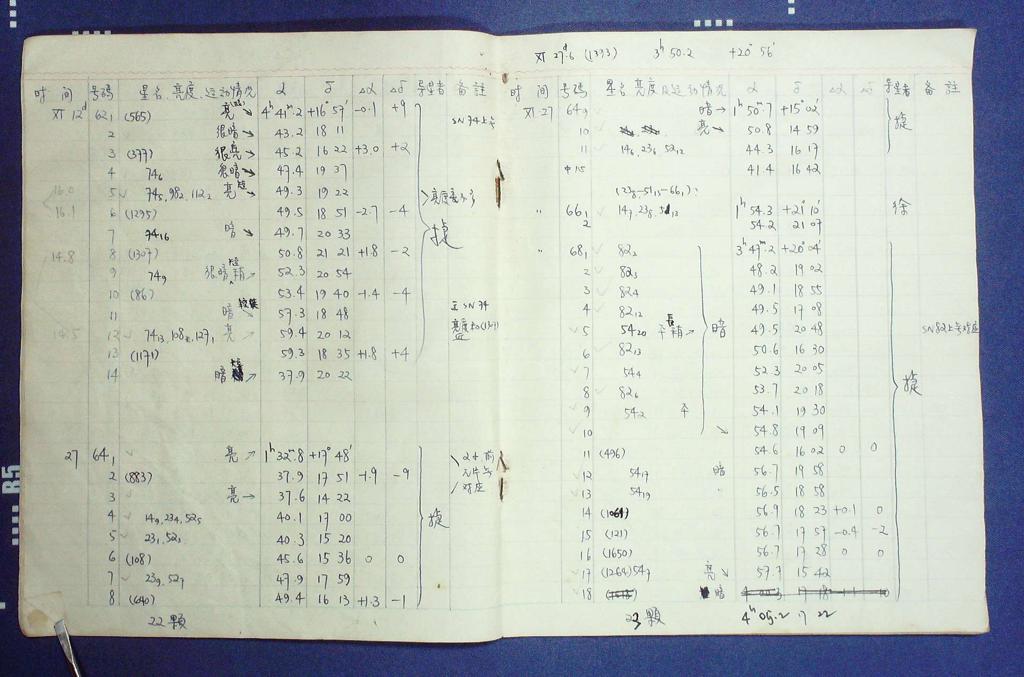 XI 27.6 (1393) 3h 50.2 +20° 56'
时 间 号码 星名、亮度、运动情况 α δ Δα Δδ 寻星者 备註
XI 12d 62₁ (565) 亮 ↘ 4h 41m.2 +16° 57' -0.1 +9 SN 74上与
2 很暗 ↘ 43.2 18 11
3 (377) 很亮 ↘ 45.2 16 22 +3.0 +2
4 74₆ 很暗 ↘ 47.4 19 37
16.0 5 74₅, 98₂, 112₂ 亮 ↘ 49.3 19 22
16.1 6 (1295) 49.5 18 51 -2.7 -4
7 74₁₆ 暗 ↘ 49.7 20 33 捷
14.8 8 (1307) 50.8 21 21 +1.8 -2
9 74₉ 很暗 52.3 20 54
10 (86) 53.4 19 40 -1.4 -4
11 暗 57.3 18 48 SN 74
14.5 12 74₁₃, 108₄, 127₁ 亮 ↗ 59.4 20 12
13 (1171) 59.3 18 35 +1.8 +4
14 暗 ↗ 37.9 20 22
27 64₁ 亮 ↗ 1h 32m.8 +17° 48'
2 (883) 37.9 17 51 -1.9 -9
3 亮 → 37.6 14 22
4 14₉, 23₄, 52₅ 40.1 17 00 捷
5 23₁, 52₃ 40.3 15 20
6 (108) 45.6 15 36 0 0
7 23₉, 52₇ 47.9 17 59
8 (640) 49.4 16 13 +1.3 -1
22 顆
时 间 号码 星名、亮度及运动情况 α δ Δα Δδ 寻星者 备 註
XI 27 64₉ 暗 → 1h 50m.7 +15° 02'
10 亮 ↘ 50.8 14 59 捷
11 14₆, 23₆, 52₁₂ 44.3 16 17
15 41.4 16 42
(23₈-51₁₅-66₁)
" 66₁ 14₇, 23₈, 51₁₂ 1h 54.3 +21° 10' 徐
2 54.2 21 07
" 68₁ 82₂ 3h 47m.2 +20° 04'
2 82₃ 48.2 19 02
3 82₄ 49.1 18 55
4 82₁₂ 49.5 17 08
5 54₂₀ 暗 49.5 20 48 SN82上与对应
6 82₁₃ 50.6 16 30
7 54₄ 52.3 20 05
8 82₆ 53.7 20 18 捷
9 54₂ 54.1 19 30
10 ↘ 54.8 19 09
11 (496) 54.6 16 02 0 0
12 54₁₇ 暗 56.7 19 58
13 54₁₉ " 56.5 18 58
14 (1064) 56.9 18 23 +0.1 0
15 (121) 56.7 17 57 -0.4 -2
16 (1650) 56.7 17 28 0 0
17 (1264) 54₇ 亮 ↘ 57.7 15 42
18 暗
23 顆 4h 05.2 17 22